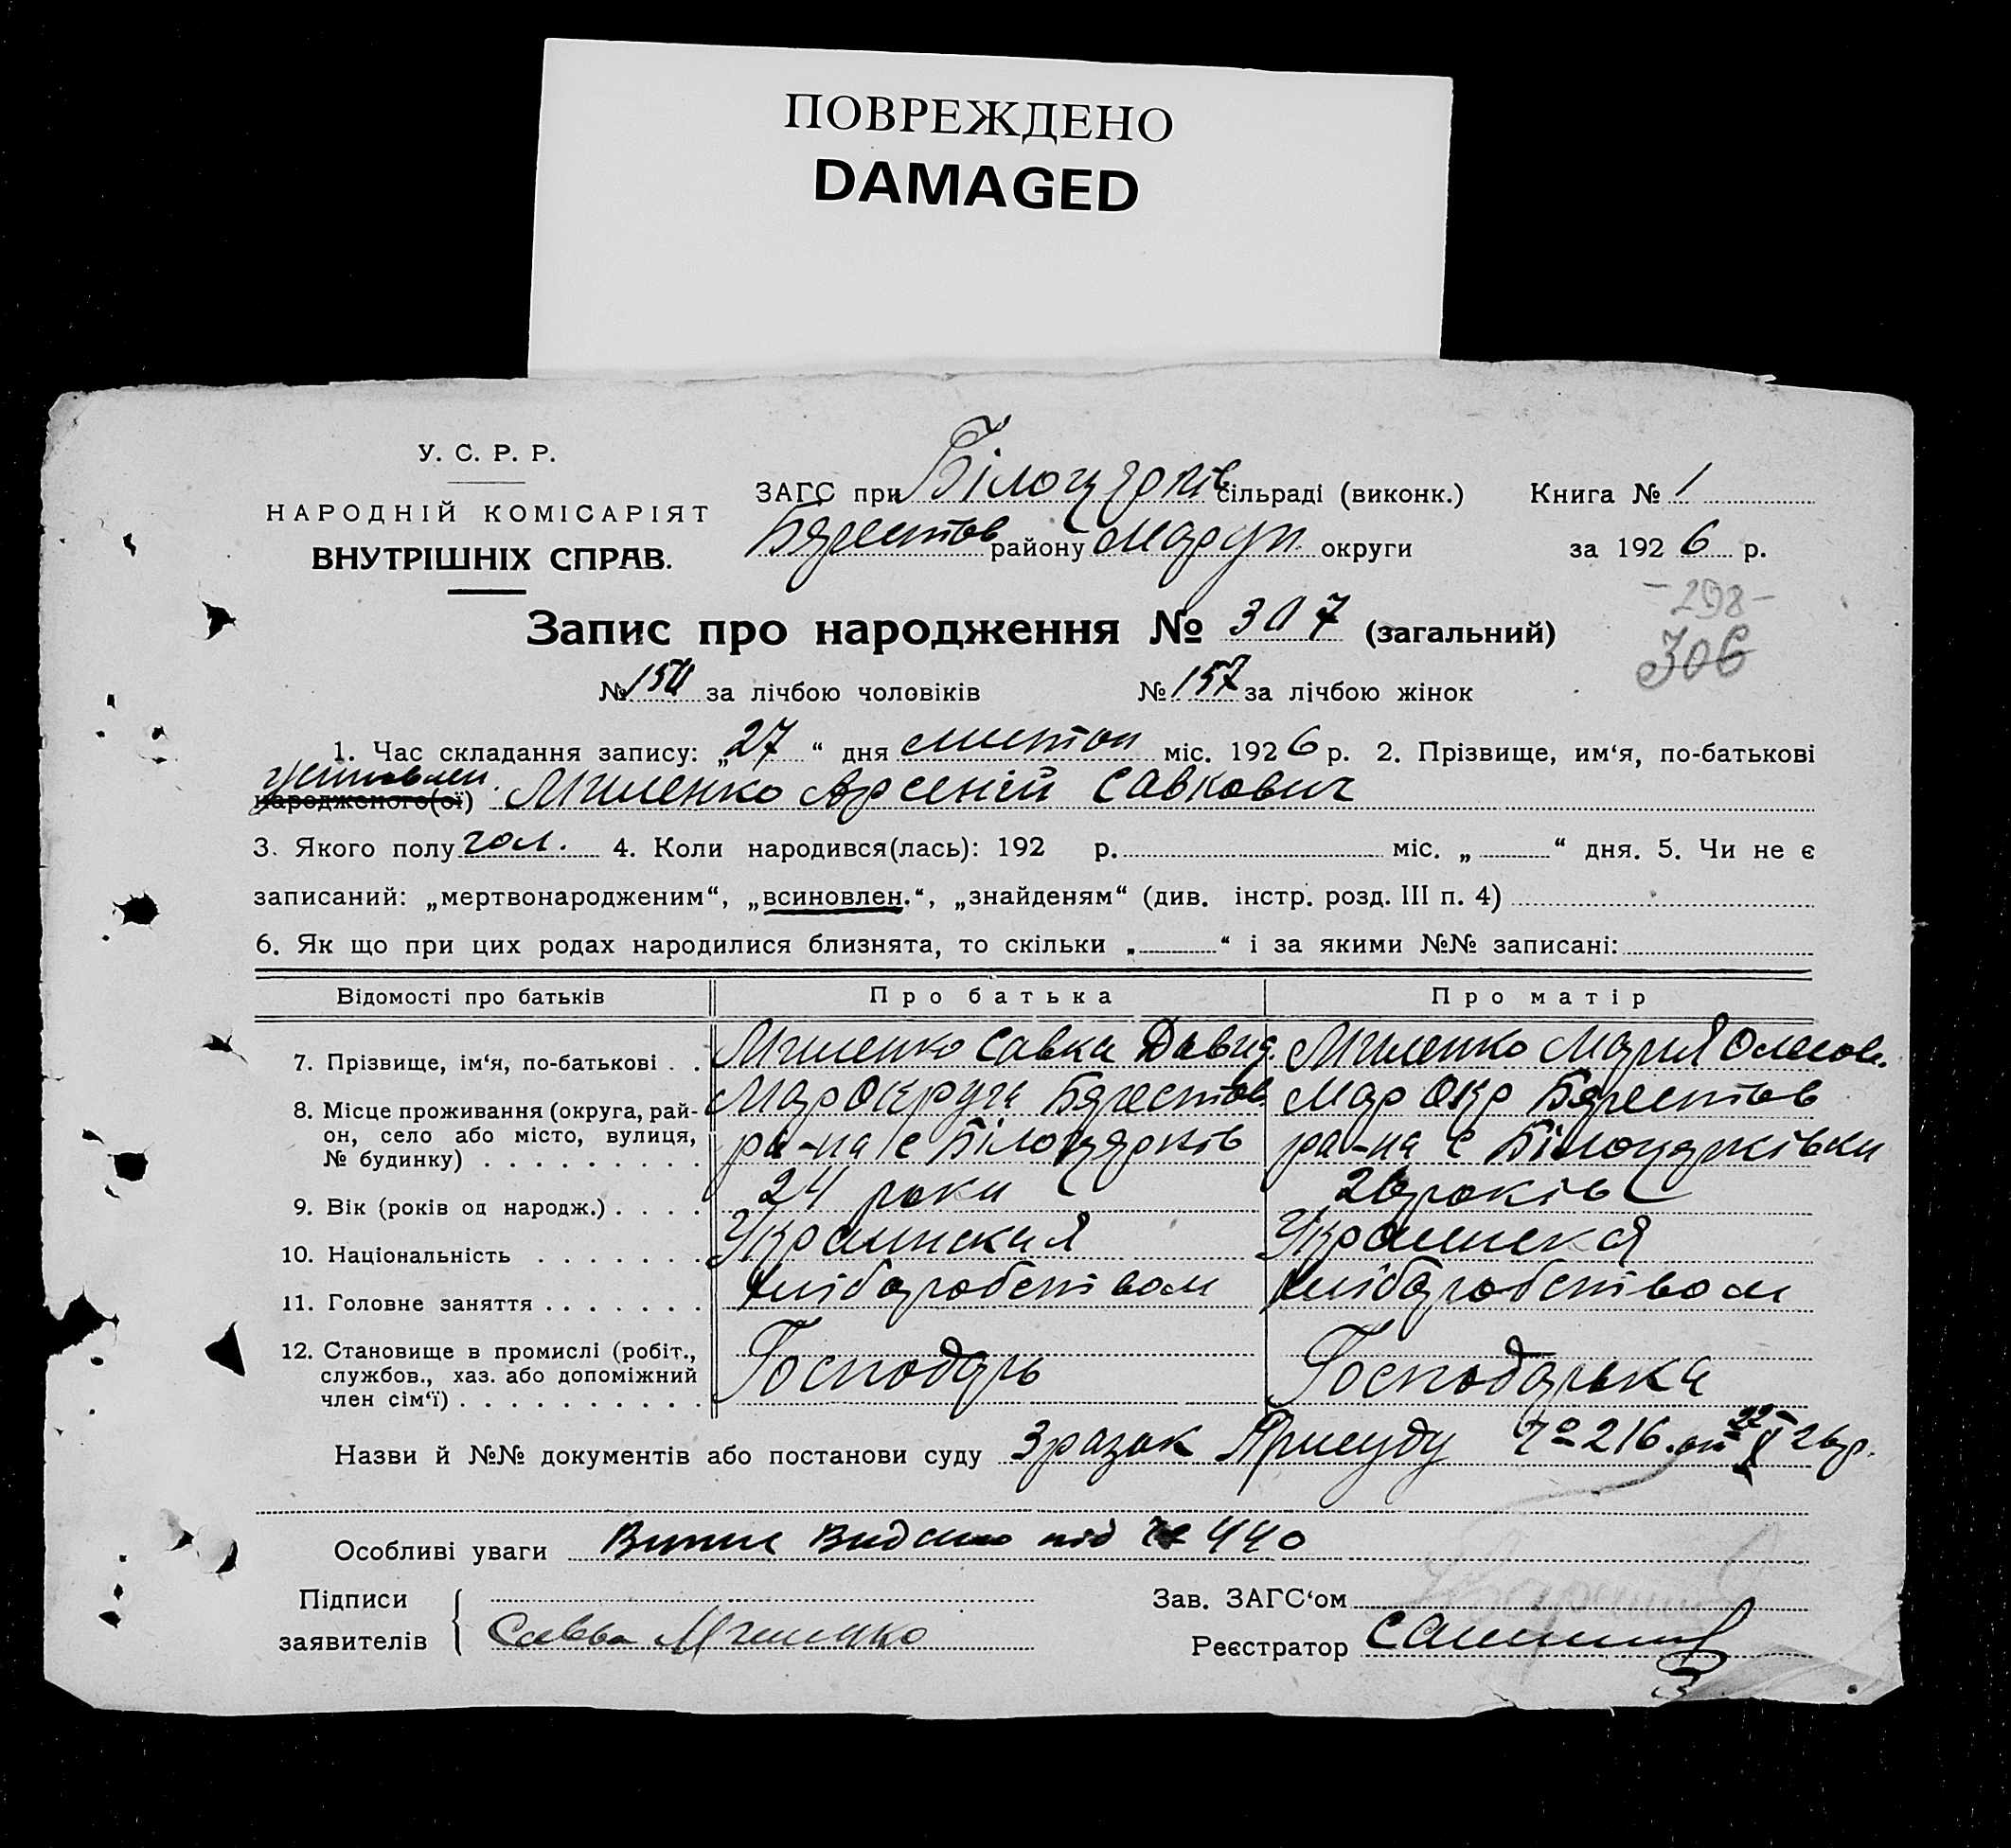 ПОВРЕЖДЕНО
DAMAGED
У. С. Р. Р.
НАРОДНІЙ КОМІСАРІЯТ
ВНУТРІШНІХ СПРАВ.
ЗАГС при Білоцерків сільраді (виконк.) Книга № 1
району Маруп. округи за 1926 р.
-298-
Запис про народження № 307 (загальний)
306
№ 150 за лічбою чоловіків № 157 за лічбою жінок
1. Час складання запису: „27“ дня листоп міс. 1926 р. 2. Прізвище, им‘я, по-батькові
народженого(ої) Арсеній Савкович
3. Якого полу чол. 4. Коли народився(лась): 192 р. міс. „ “ дня. 5. Чи не є
записаний: „мертвонародженим“, „всиновлен.“, „знайденям“ (див. інстр. розд. III п. 4)
6. Як що при цих родах народилися близнята, то скільки „ “ і за якими №№ записані:
Відомості про батьків Про батька Про матір
7. Прізвище, ім‘я, по-батькові . . Савка Давид. Мария
8. Місце проживання (округа, рай- Мар Округа Мар Окр
он, село або місто, вулиця, ра-на с Білоцерків ра-на с Білоцерківки
№ будинку) . . . . . . . . .
9. Вік (років од народж.) . . . . 24 роки 26 років
10. Національність . . . . . . . Украинская Украинская
11. Головне заняття . . . . . . . хліборобством хліборобством
12. Становище в промислі (робіт.,
службов., хаз. або допоміжний Господарь Господарька
член сім‘ї) . . . . . . . . . . .
Назви й №№ документів або постанови суду Зразок Присуду № 216 от 22 26 р.
Особливі уваги Випис видано під № 440
Підписи Зав. ЗАГС‘ом
заявителів Савва Реєстратор